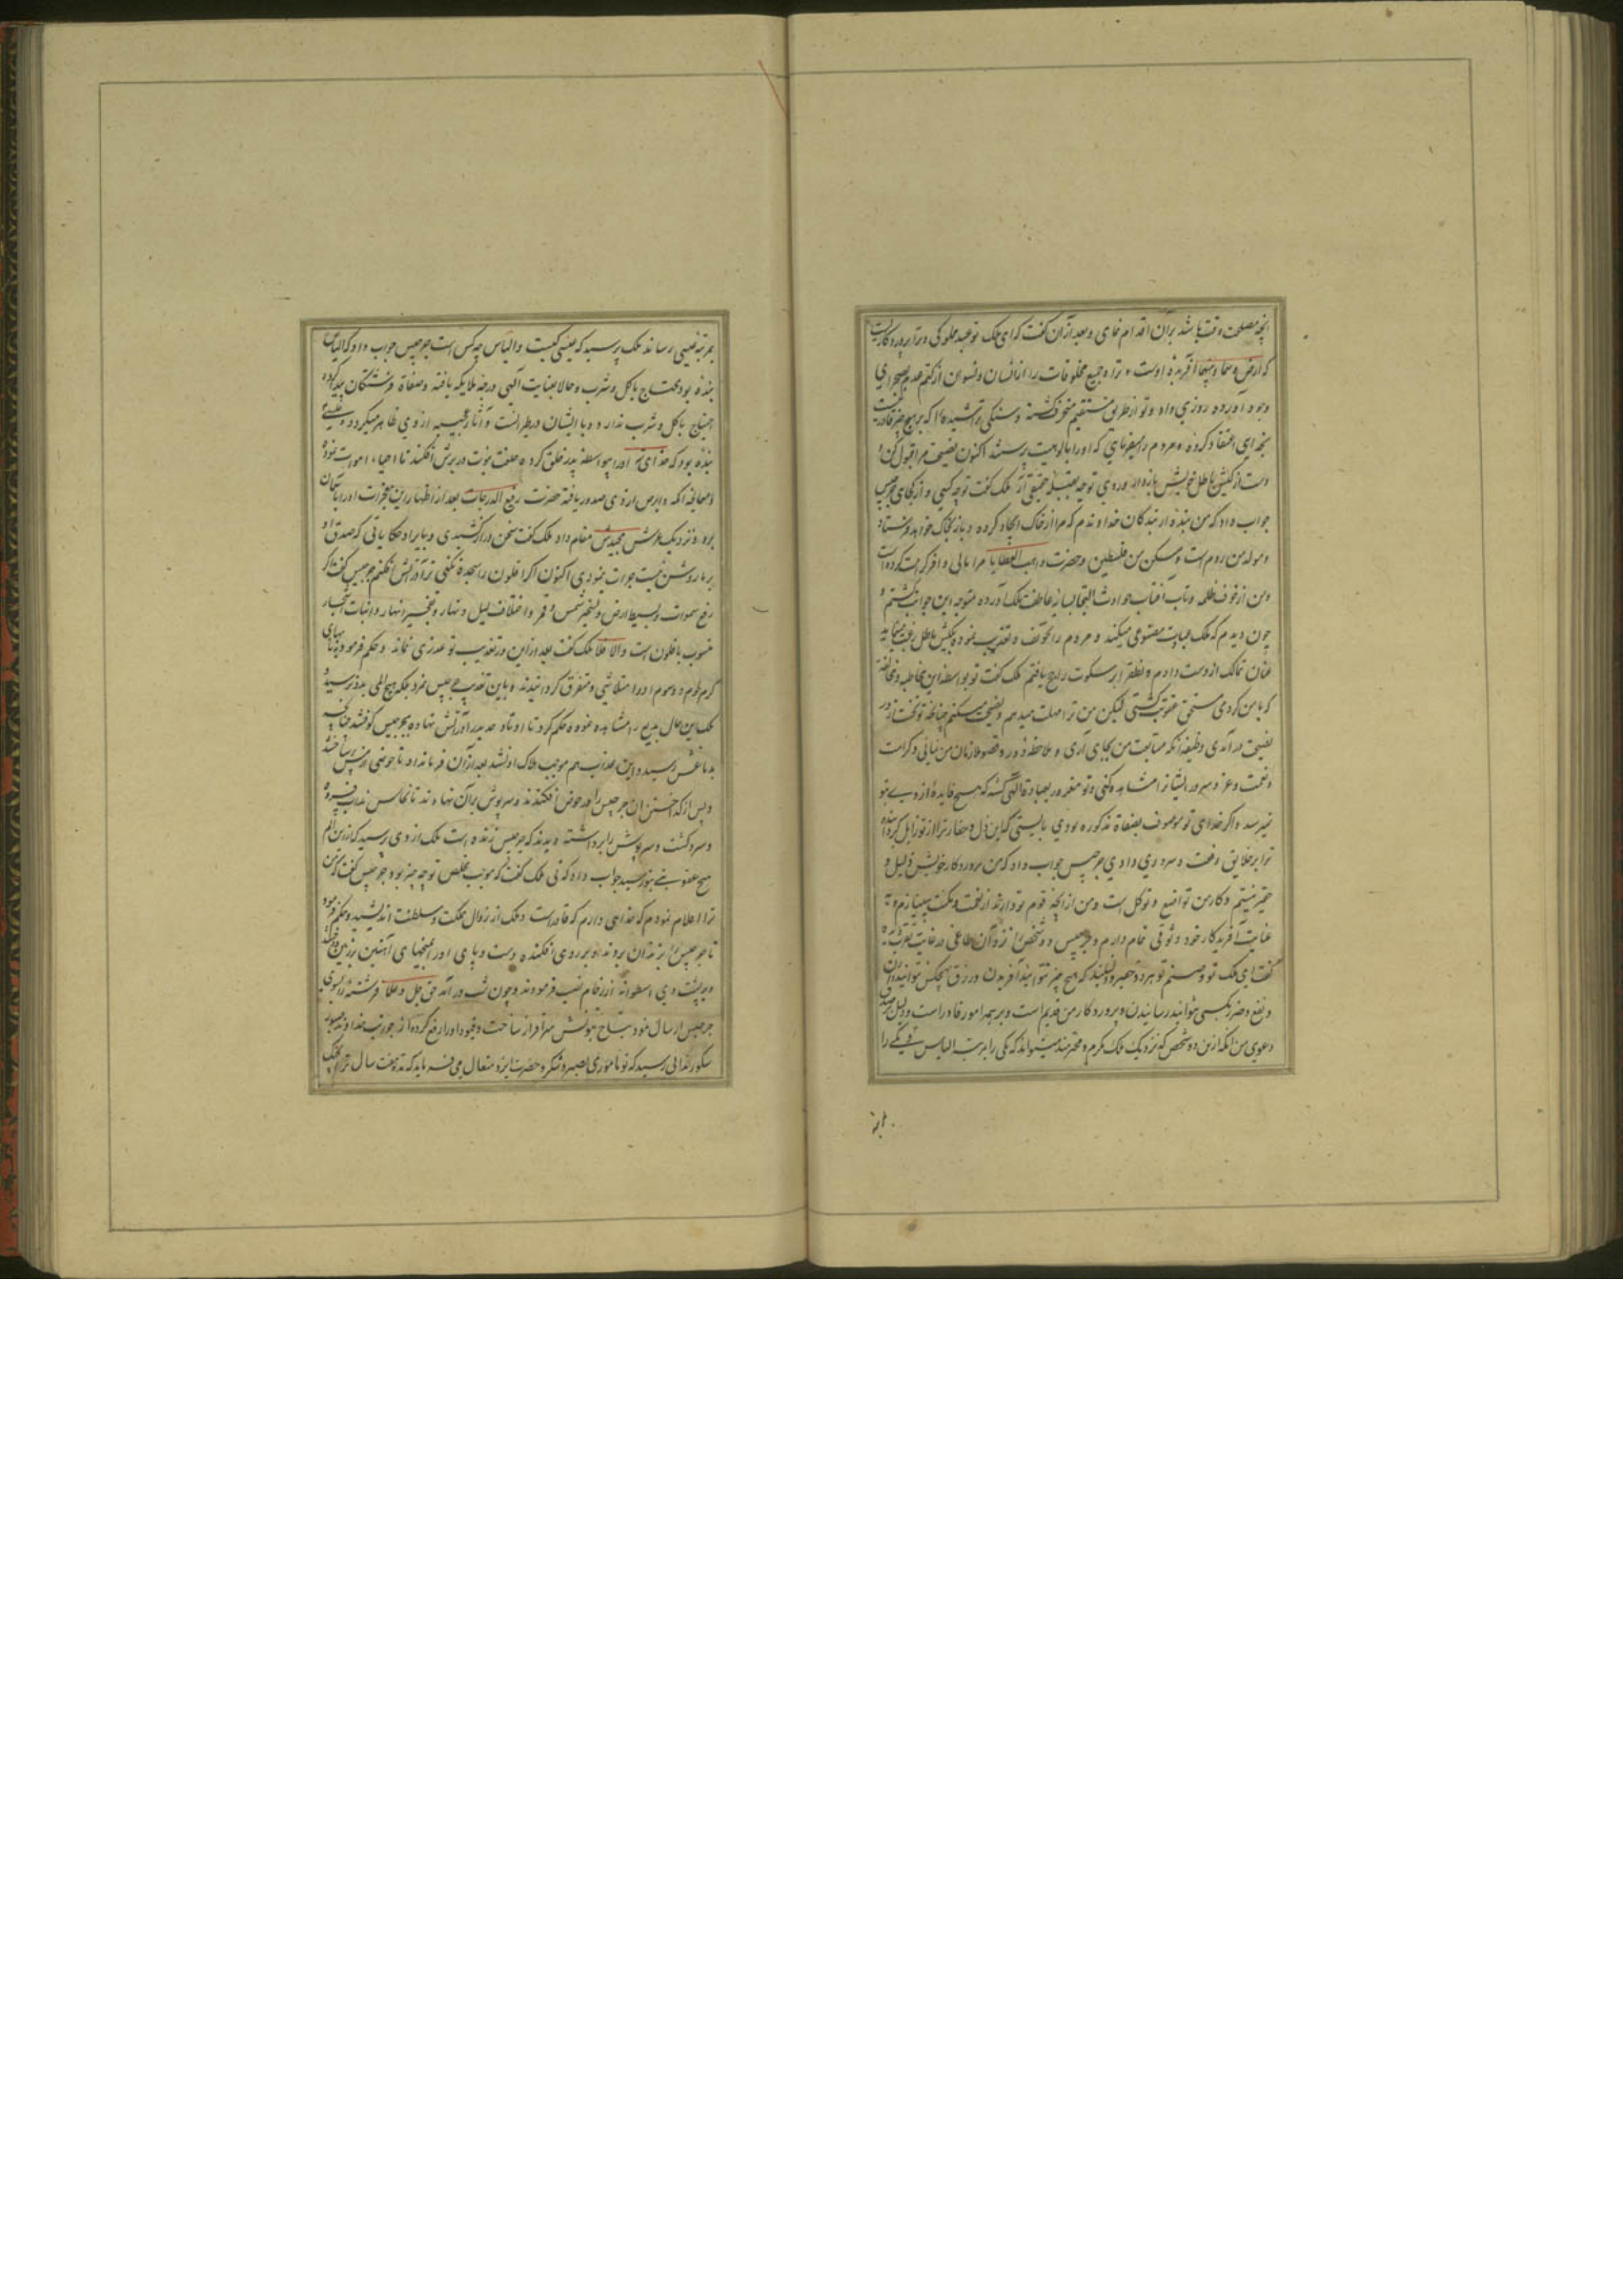 آنچه مصلحت وقت باشد بران اقدام نمای و بعد از ان گفت که ای ملک تو عبد مملوکی و ترا پروردگاریست
که ارض و سما و ما بینهما آفریده اوست و ترا و جمیع مخلوقات را از انسان و نسوان از کتم عدم بصحرای
وجود آورده روزی داده و تو از طریق مستقیم منحرف گشته و سنگی تراشیده را که بر هیچ چیز قادر نیست
بخدای اعتقاد کرده و مردم را میفرمایی که او را بالوهیت پرستند اکنون نصیحت مرا قبول کن و
دست از کیش باطل خویش بازدار و روی توجه بقبله حقیقی آر ملک گفت تو چه کسی و از کجای جرجیس
جواب داد که من بنده از بندگان خداوندم که مرا از خاک ایجاد کرده و باز بخاک خواهد فرستاد
و مولد من روم است و مسکن من فلسطین و حضرت واهب العطایا مرا مالی وافر کرامت کرده است
و من از خوف ظلمه و تاب آفتاب حوادث التجا بسایه عاطفت ملک آورده متوجه این جوانب گشتم و
چون دیدم که ملک عبادت مصنوعی میکند و مردم را تخویف و تعذیب نموده بکیش باطل
عنان تمالک از دست دادم و نطق را بر سکوت راجح یافتم ملک گفت تو بواسطه این مخاطبه و مخالفه
که با من کردی مستحق عقوبت گشتی لیکن من ترا مهلت میدهم و نصیحت میکنم چنانکه تو نخست از در
نصیحت درآمدی وظیفه آنکه متابعت من بجای آری و ملاحظه دور و قصور ملازمان من نمایی و کرامت
و نعمت و عز و سرور ایشانرا مشاهده کنی و تو مغرور بعبادة الهی گشته که هیچ فایده از وی بتو
نمیرسد و اگر خدای تو موصوف بصفاة مذکوره بودی بایستی که این ذل و حقارت را از تو زایل گردانیده
ترا بر خلایق رفعت و سروری دادی جرجیس جواب داد که من پروردگار خویش ذلیل و
حقیر نیستم و کار من تواضع و توکل است و من از آنچه قوم تو دارند از نعمت و مکنت بینیازم و به
عنایت آفریدگار خود وثوقی تمام دارم و جرجیس دو شخص را نزد آن طاغی در غایت تقرب دیده
گفت ای ملک تو و صنم تو هر دو حقیر و ذلیلید که هیچ چیز نتوانید آفریدن و رزق بهیچکس نتوانید دادن
و نفع و ضر بکسی نتوانید رسانیدن و پروردگار من قدیم است و بر همه امور قادر است و دلیل صدق
دعوی من آنکه ازین دو شخص که نزدیک ملک مکرم و محترمند میتواند که یکی را بمرتبه الیاس و یکی را
بمرتبه عیسی رساند ملک پرسید که عیسی کیست و الیاس چه کس است جرجیس جواب داد که الیاس
بنده بود محتاج باکل و شرب و حالا بعنایت آلهی درجه ملایکه یافته و صفاة فرشتگان پیدا کرده
احتیاج باکل و شرب ندارد و با ایشان در طیرانست و آثار عجیبه از وی ظاهر میگردد و عیسی
بنده بود که خدای تعالی او را بیواسطه پدر خلق کرده خلعت نبوت در برش افکند تا احیاء اموات نموده
و معالجه اکمه و ابرص از وی صدور یافته حضرت رفیع الدرجات بعد از اظهار این معجزات او را بآسمان
برد و نزدیک عرش مجیدش مقام داد ملک گفت سخن دراز کشیدی و بایراد حکایاتی که صدق او
بر ما روشن نیست جرات نمودی اکنون اگر افلون را سجده نکنی ترا در آتش افکنم جرجیس گفت اگر
رفع سموات و بسیط ارض و تسخیر شمس و قمر و اختلاف لیل و نهار و تفجیر انهار و انبات اشجار
منسوب بافلون است والا فلا ملک گفت بعد ازین در تعذیب تو عذری نماند و حکم فرمود
او را متلاشی و متفرق گردانیدند و باین تعذیب جرجیس نمرد بلکه هیچ المی بدو نرسید و
ملک این حال بدیع را مشاهده نموده حکم کرد تا اوتاد حدید را در آتش نهاده بجرجیس کوفتند چنانچه
بدماغش رسید و این عذاب هم موجب هلاک او نشد بعد از آن فرمانداد تا حوضی از مس ساختند
و پس از گداختن آن جرجیس را در حوض افکندند و سرپوش بران نهادند تا نحاس مذاب فسرده
و سرد گشت و سرپوش را برداشته دیدند که جرجیس زنده است ملک از وی پرسید که ازین الم
هیچ عقوبتی بتو رسید جواب داد که نی ملک گفت که موجب تخلص تو چه چیز بود جرجیس گفت که من
ترا اعلام نمودم که خدایی دارم که قادر است و ملک از زوال مملکت و سلطنت اندیشید و حکم فرمود
تا جرجیس را بزندان بردند و بر روی افکنده دست و پای او را بمیخهای آهنین بر زمین دوختند
و بر پشت وی اسطوانه از رخام نصب فرمودند و چون شب درآمد حق جل و علا فرشته را بسوی
جرجیس ارسال نمود بتاج نبوتش سرافراز ساخت و قیود او را رفع کرده از جانب خداوند صبور
شکور ندایی رسید که تو ماموری بصبر و شکر و حضرت ایزد متعال میفرماید که مدت هفت سال ترا